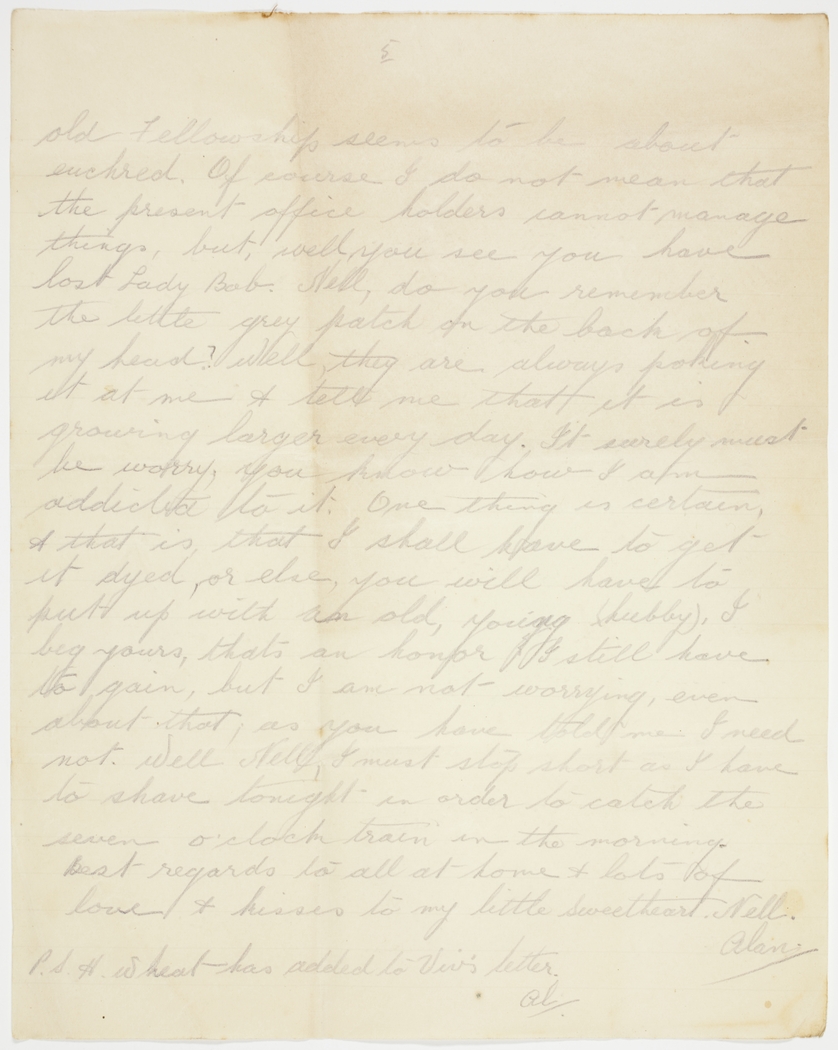 5
old Fellowship seems to be about
euchred. Of course I do not mean that
the present office holders cannot manage
things, but, well, you see you have
lost Lady Bob. Nell, do you remember
the little grey patch on the back of
my head? Well, they are always poking
it at me & tell me that it is
growing larger every day. It surely must
be worry, you know how I am
addicted to it. One thing is certain,
& that is, that I shall have to get
it dyed, or else, you will have to
put up with an old, young (hubby), I
beg yours, thats an honor I still have
to gain, but I am not worrying, even
about that, as you have told me I need
not. Well Nell, I must stop short as I have
to shave tonight in order to catch the
seven o'clock train in the morning.
best regards to all at home & lots of
love & kisses to my little sweetheart. Nell.
Alan.
P.S. H. Wheat has added to Viv's letter.
Al.